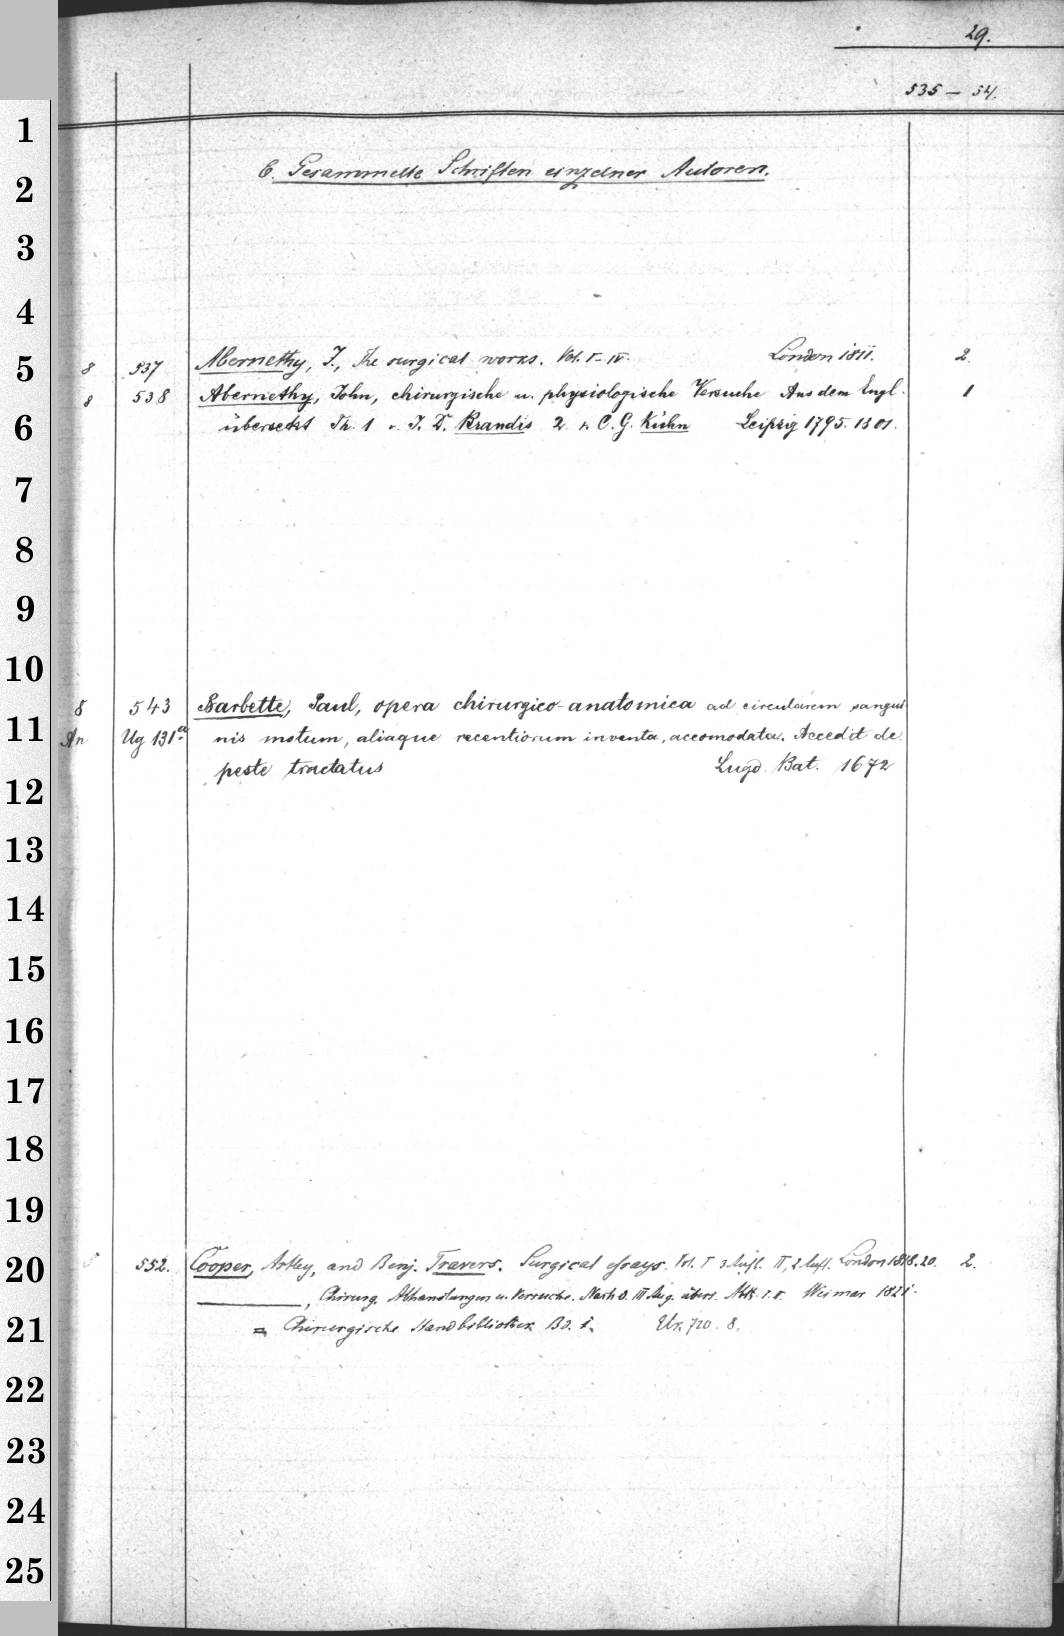 29.
535 — 54.
1
2
3
4
5
6
7
8
9
10
11
12
13
14
15
16
17
18
19
20
21
22
23
24
25
C. Gesammelte Schriften einzelner Autoren.
8 537 Abernethy, J., The surgical works. Vol. I–IV. London 1811. 2.
8 538 Abernethy, John, chirurgische u. physiologische Versuche Aus dem Engl.
übersetzt Th. 1 v. J. D. Brandis 2 v. C. G. Kühn Leipzig 1795. 1801. 1
8 543 Barbette, Paul, opera chirurgico-anatomica ad circularem sangui
An Ug 131a nis motum, aliaque recentiorum inventa, accomodata. Accedit de
peste tractatus Lugd. Bat. 1672
8 552. Cooper, Astley, and Benj. Travers. Surgical essays. Vol. I 3 Aufl. II, 2 Aufl. London 1818.20. 2.
, Chirurg. Abhandlungen u. Versuche. Nach d. III Aug. übers. Weimar 1821.
= Chirurgische Handbibliothek Bd. 1. Ur. 720. 8.